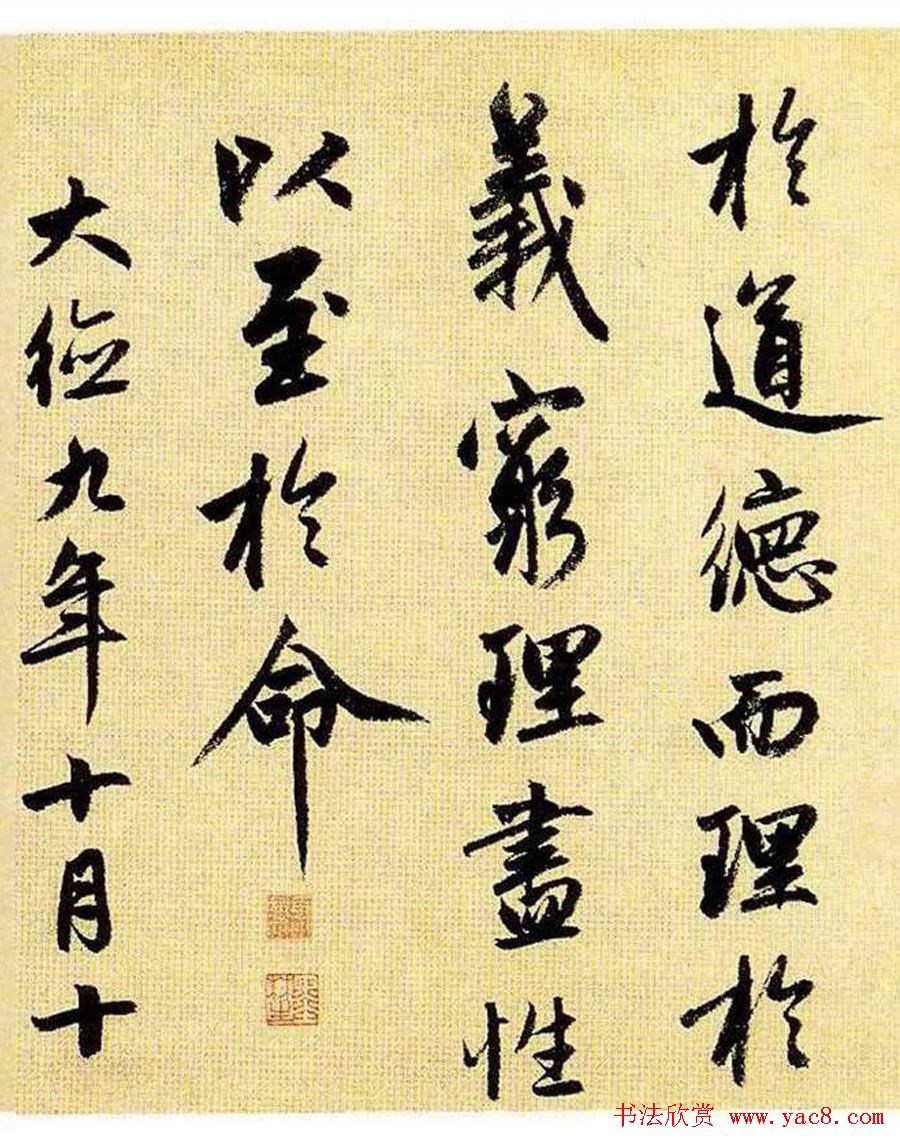 於道德而理於
義窮理盡性
以至於命
大德九年十月十
书法欣赏 www.yac8.com